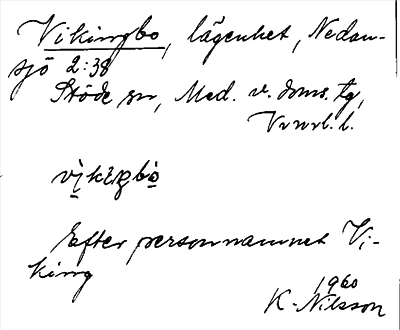 Vikingbo, lägenhet, Nedan-
sjö 2:38
Stöde sn, Med. v. doms. tg,
Vnorl. l.
vìkiŋbò
Efter personnamnet Vi-
king
1960
K. Nilsson